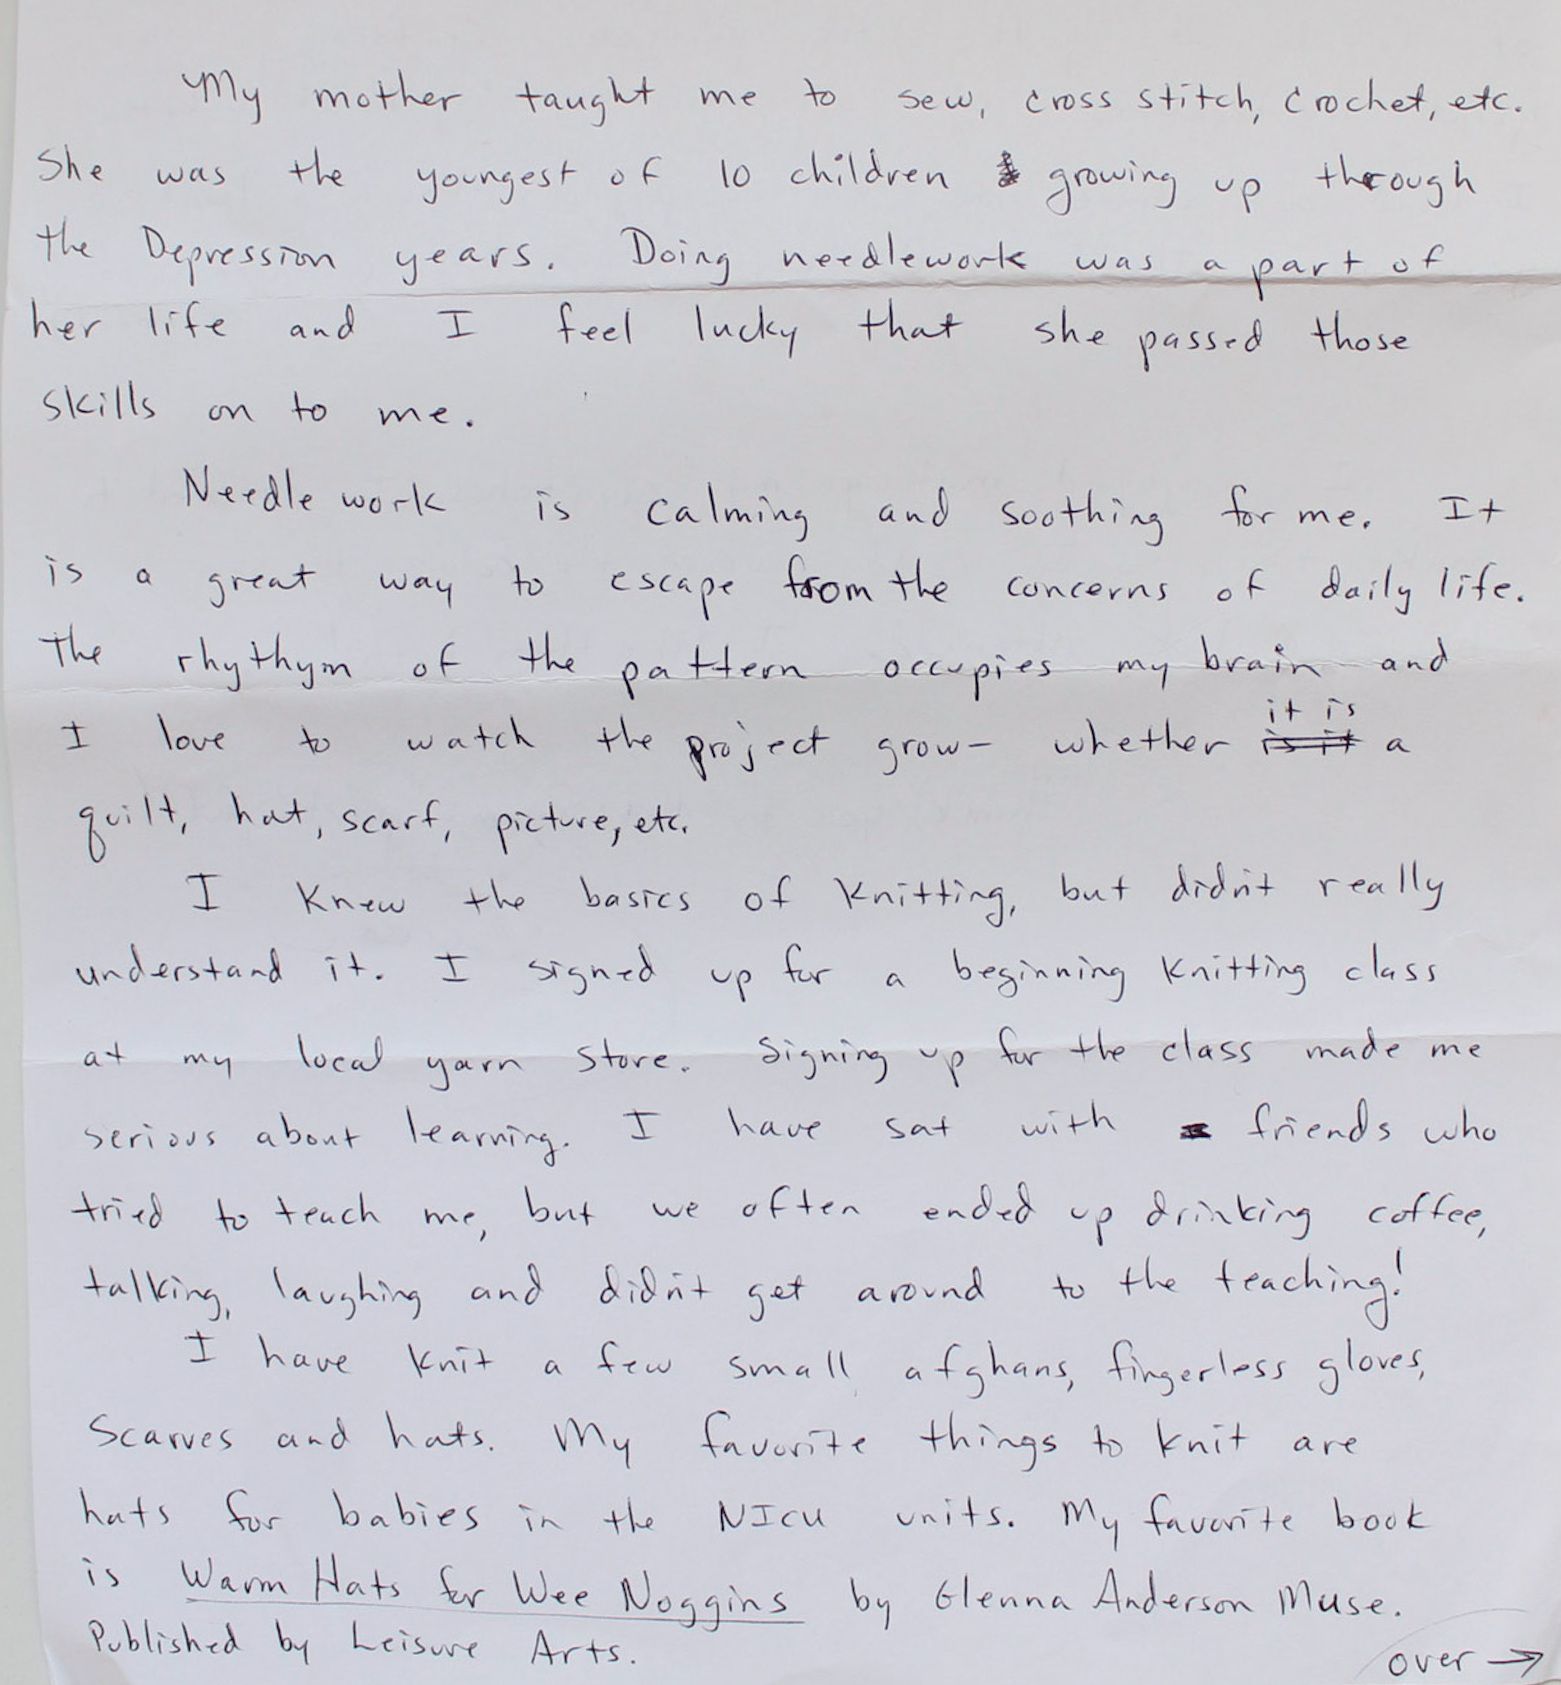 My mother taught me to sew, cross stitch, crochet, etc.
She was the youngest of 10 children growing up through
the Depression years. Doing needlework was a part of
her life and I feel lucky that she passed those
skills on to me.
Needle work is calming and soothing for me. It
is a great way to escape from the concerns of daily life.
The rhythym of the pattern occupies my brain and
I love to watch the project grow- whether it is a
quilt, hat, scarf, picture, etc.
I knew the basics of knitting, but didn't really
understand it. I signed up for a beginning knitting class
at my local yarn store. Signing up for the class made me
serious about learning. I have sat with friends who
tried to teach me, but we often ended up drinking coffee,
talking, laughing and didn't get around to the teaching!
I have knit a few small afghans, fingerless gloves,
scarves and hats. My favorite things to knit are
hats for babies in the NICU units. My favorite book
is Warm Hats for Wee Noggins by Glenna Anderson Muse.
Published by Leisure Arts.
over →